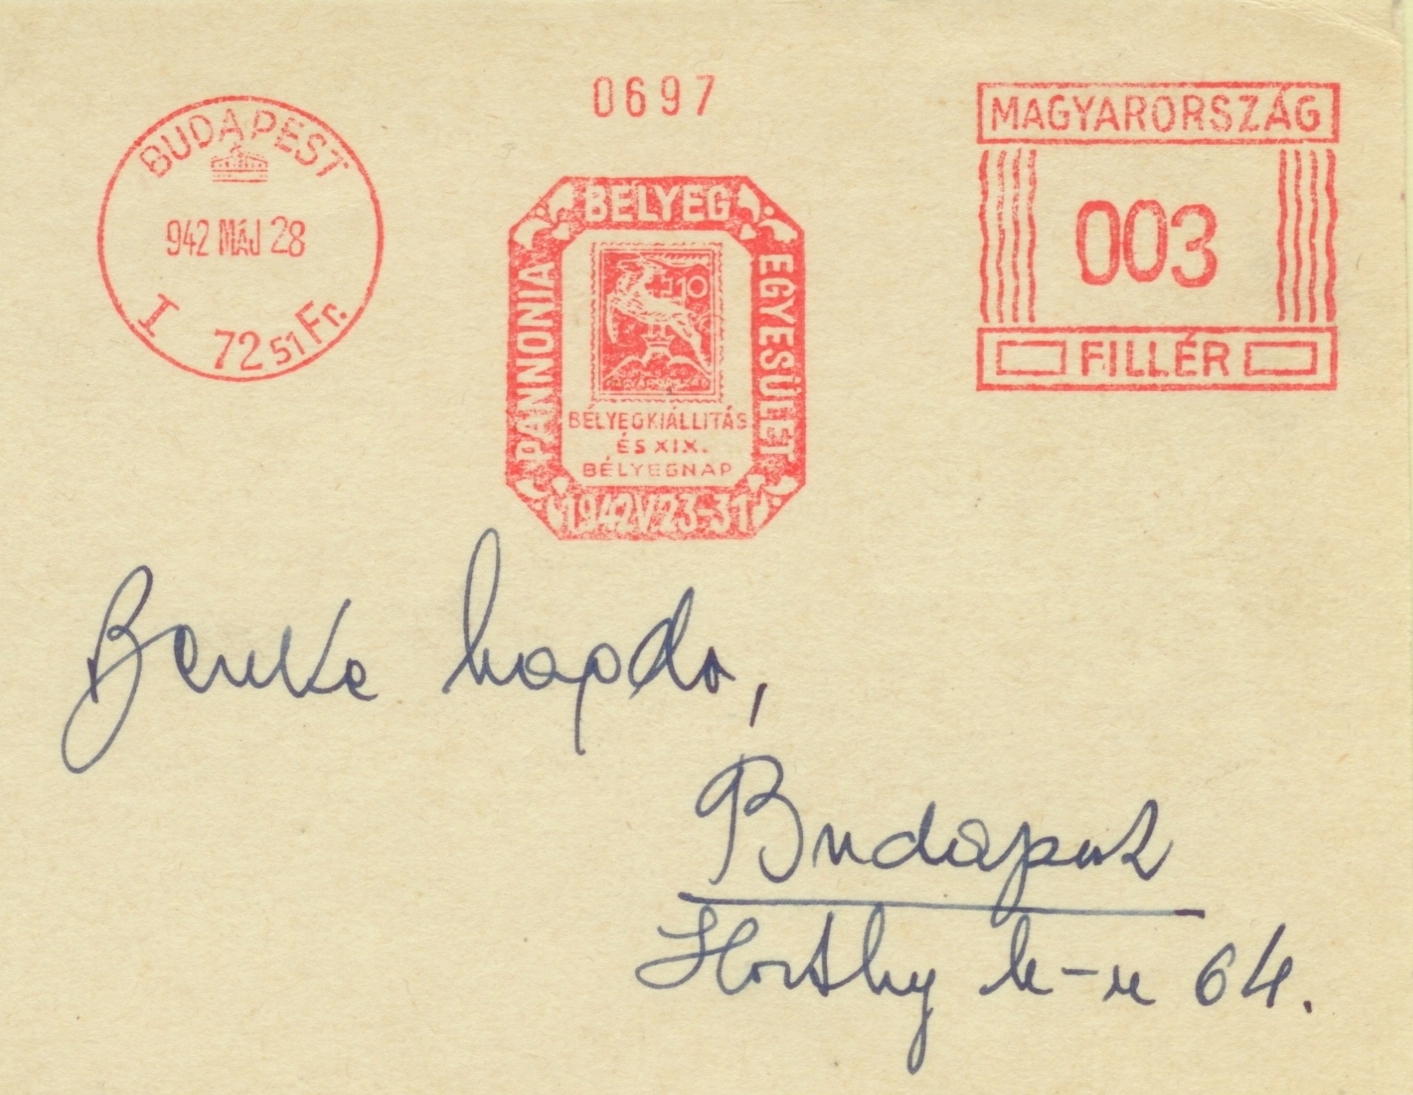 0697
BUDAPEST
942 MÁJ 28
I 72 51 Fr.
BÉLYEG
PANNONIA
EGYESÜLET
+10
BÉLYEGKIÁLLITÁS
ÉS XIX.
BÉLYEGNAP
1942V/23-31
MAGYARORSZÁG
003
FILLÉR
Benke
Budapest
Horthy M-u 64.